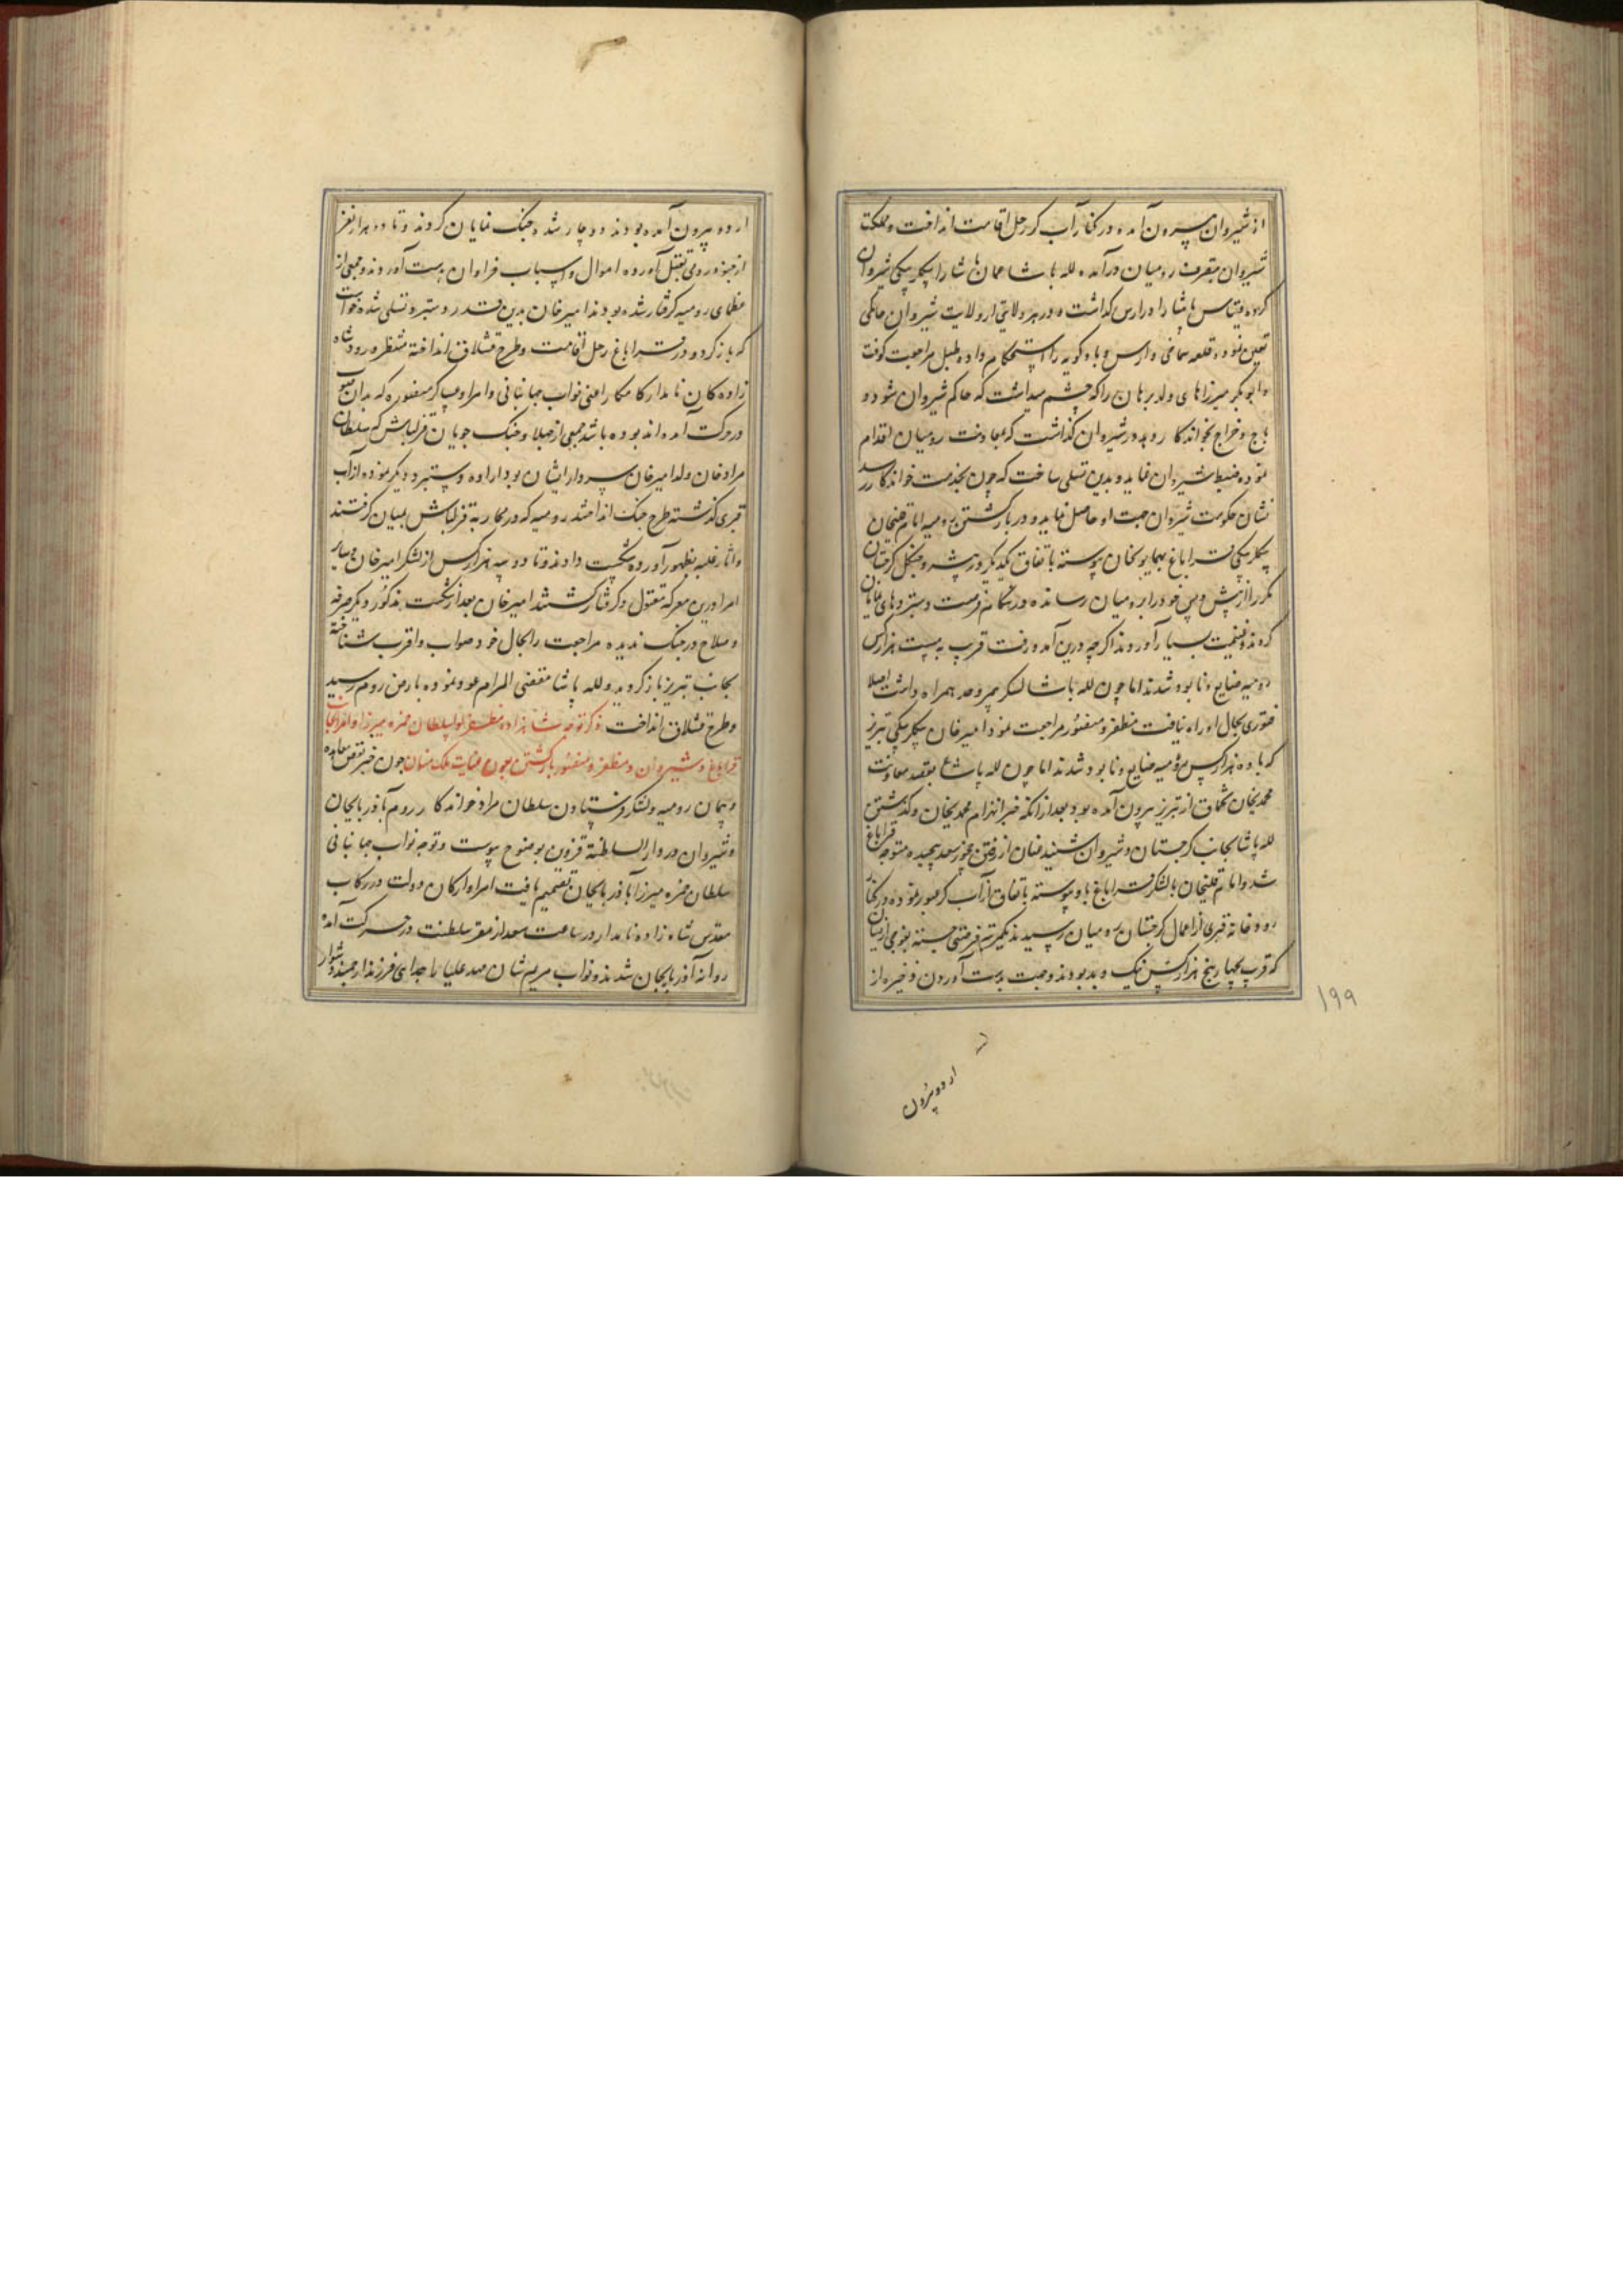 از شیروان بیرون آمده در کنار آب کر رحل اقامت انداخت و مملکت
شیروان بتصرف رومیان درآمده لله پاشا عمان پاشا را بیکلربیکی شیروان
کرده قیتاس پاشا را در ارس کذاشت و در هر ولایتی از ولایت شیروان حاکمی
تعیین نموده قلعه شماخی و ارس و بادکوبه را استحکام داده طبل مراجعت کوفت
و ابوبکر میرزای ولد برهان را که چشم میداشت که حاکم شیروان شود و
باج و خراج بخواندکار دهد در شیروان کذاشت که بمعاونت رومیان اقدام
نموده ضبط شیروان نماید و بدین تسلی ساخت که چون بخدمت خواندکار رسد
نشان حکومت شیروان جهت او حاصل نماید و در بازکشتن رومیه امام قلیخان
بیکلربیکی قراباغ بهمایونخان پیوسته باتفاق یکدیکر در بیشه و جنکل کرجستان
مکرر از پیش و پس خود را برومیان رسانده در هنکام فرصت دستبردهای نمایان
کردند و غنیمت بسیار آوردند اکرچه درین آمد و رفت قریب به بیست هزار کس
رومیه ضایع و نابود شدند اما چون لله پاشا لشکر بیمر و حد همراه داشت اصلا
فتوری بحال او راه نیافت مظفر و منصور مراجعت نمود امیرخان بیکلربیکی تبریز
که با ده هزار کس رومیه ضایع و نابود شدند اما چون لله پاشا بقصد معاونت
محمدیخان تخماق از تبریز بیرون آمده بود بعد از آنکه خبر انهزام محمدیخان و کذشتن
لله پاشا بجانب کرجستان و شیروان شنید عنان از رفتن چخورسعد پیچیده متوجه قراباغ
شد و امام قلیخان با لشکر قراباغ باو پیوسته باتفاق از آب کر عبور نموده در کنار
رودخانه قبری از اعمال کرجستان برومیان رسیدند یکمرتبه فرصتی جسته بفوجی از ایشان
که قریب بچهار پنج هزار کس نیک و بد بودند و جهت بدست آوردن ذخیره از
۱۹۹
اردو بیرون
اردو بیرون آمده بودند دوچار شده جنک نمایان کردند و تا دو هزار نفر
از جنود رومی بقتل آورده اموال و اسباب فراوان بدست آوردند و جمعی از
عظمای رومیه کرفتار شده بودند امیرخان بدین قدر دستبرد تسلی شده خواست
که بازکردد و در قراباغ رحل اقامت و طرح قشلاق انداخته منتظر ورود شاه
زادهٔ کامکار نامدار اعنی نواب جهانبانی و امرا و عساکر منصوره که بدان صوب
در حرکت آمده‌اند بوده باشد جمعی از جهلا و جنک جویان قزلباش که سلطان
مرادخان ولد امیرخان سردار ایشان بود اراده دستبرد دیکر نموده از آب
قبری کذشته طرح جنک انداختند رومیه که در محاربه قزلباش بمیان کرفتند
و آثار غلبه بظهور آورده شکست دادند و تا دو سه هزار کس از لشکر امیرخان و سایر
امرا درین معرکه مقتول و کرفتار کشتند امیرخان بعد از شکست مذکور دیکر صرفه
و صلاح در جنک ندیده مراجعت را بحال خود صواب و اقرب شناخته
بجانب تبریز بازکردید و لله پاشا مقضی المرام عود نموده بارض روم رسید
و طرح قشلاق انداخت ذکر توجه شاهزاده مظفر لوا سلطان حمزه میرزا و امرا بجانب
قراباغ و شیروان و مظفر و منصور بازکشتن بعون عنایت ملک منان چون خبر نقض معاهده
و پیمان رومیه و لشکر فرستادن سلطان مراد خواندکار روم بآذربایجان
و شیروان در دارالسلطنه قزوین بوضوح پیوست و توجه نواب جهانبانی
سلطان حمزه میرزا بآذربایجان تصمیم یافت امرا و ارکان دولت در رکاب
مقدس شاه زاده نامدار در ساعت سعد از مقر سلطنت در حرکت آمده
روانه آذربایجان شدند و نواب مریم شان مهد علیا را جدای فرزند ارجمند دشوار